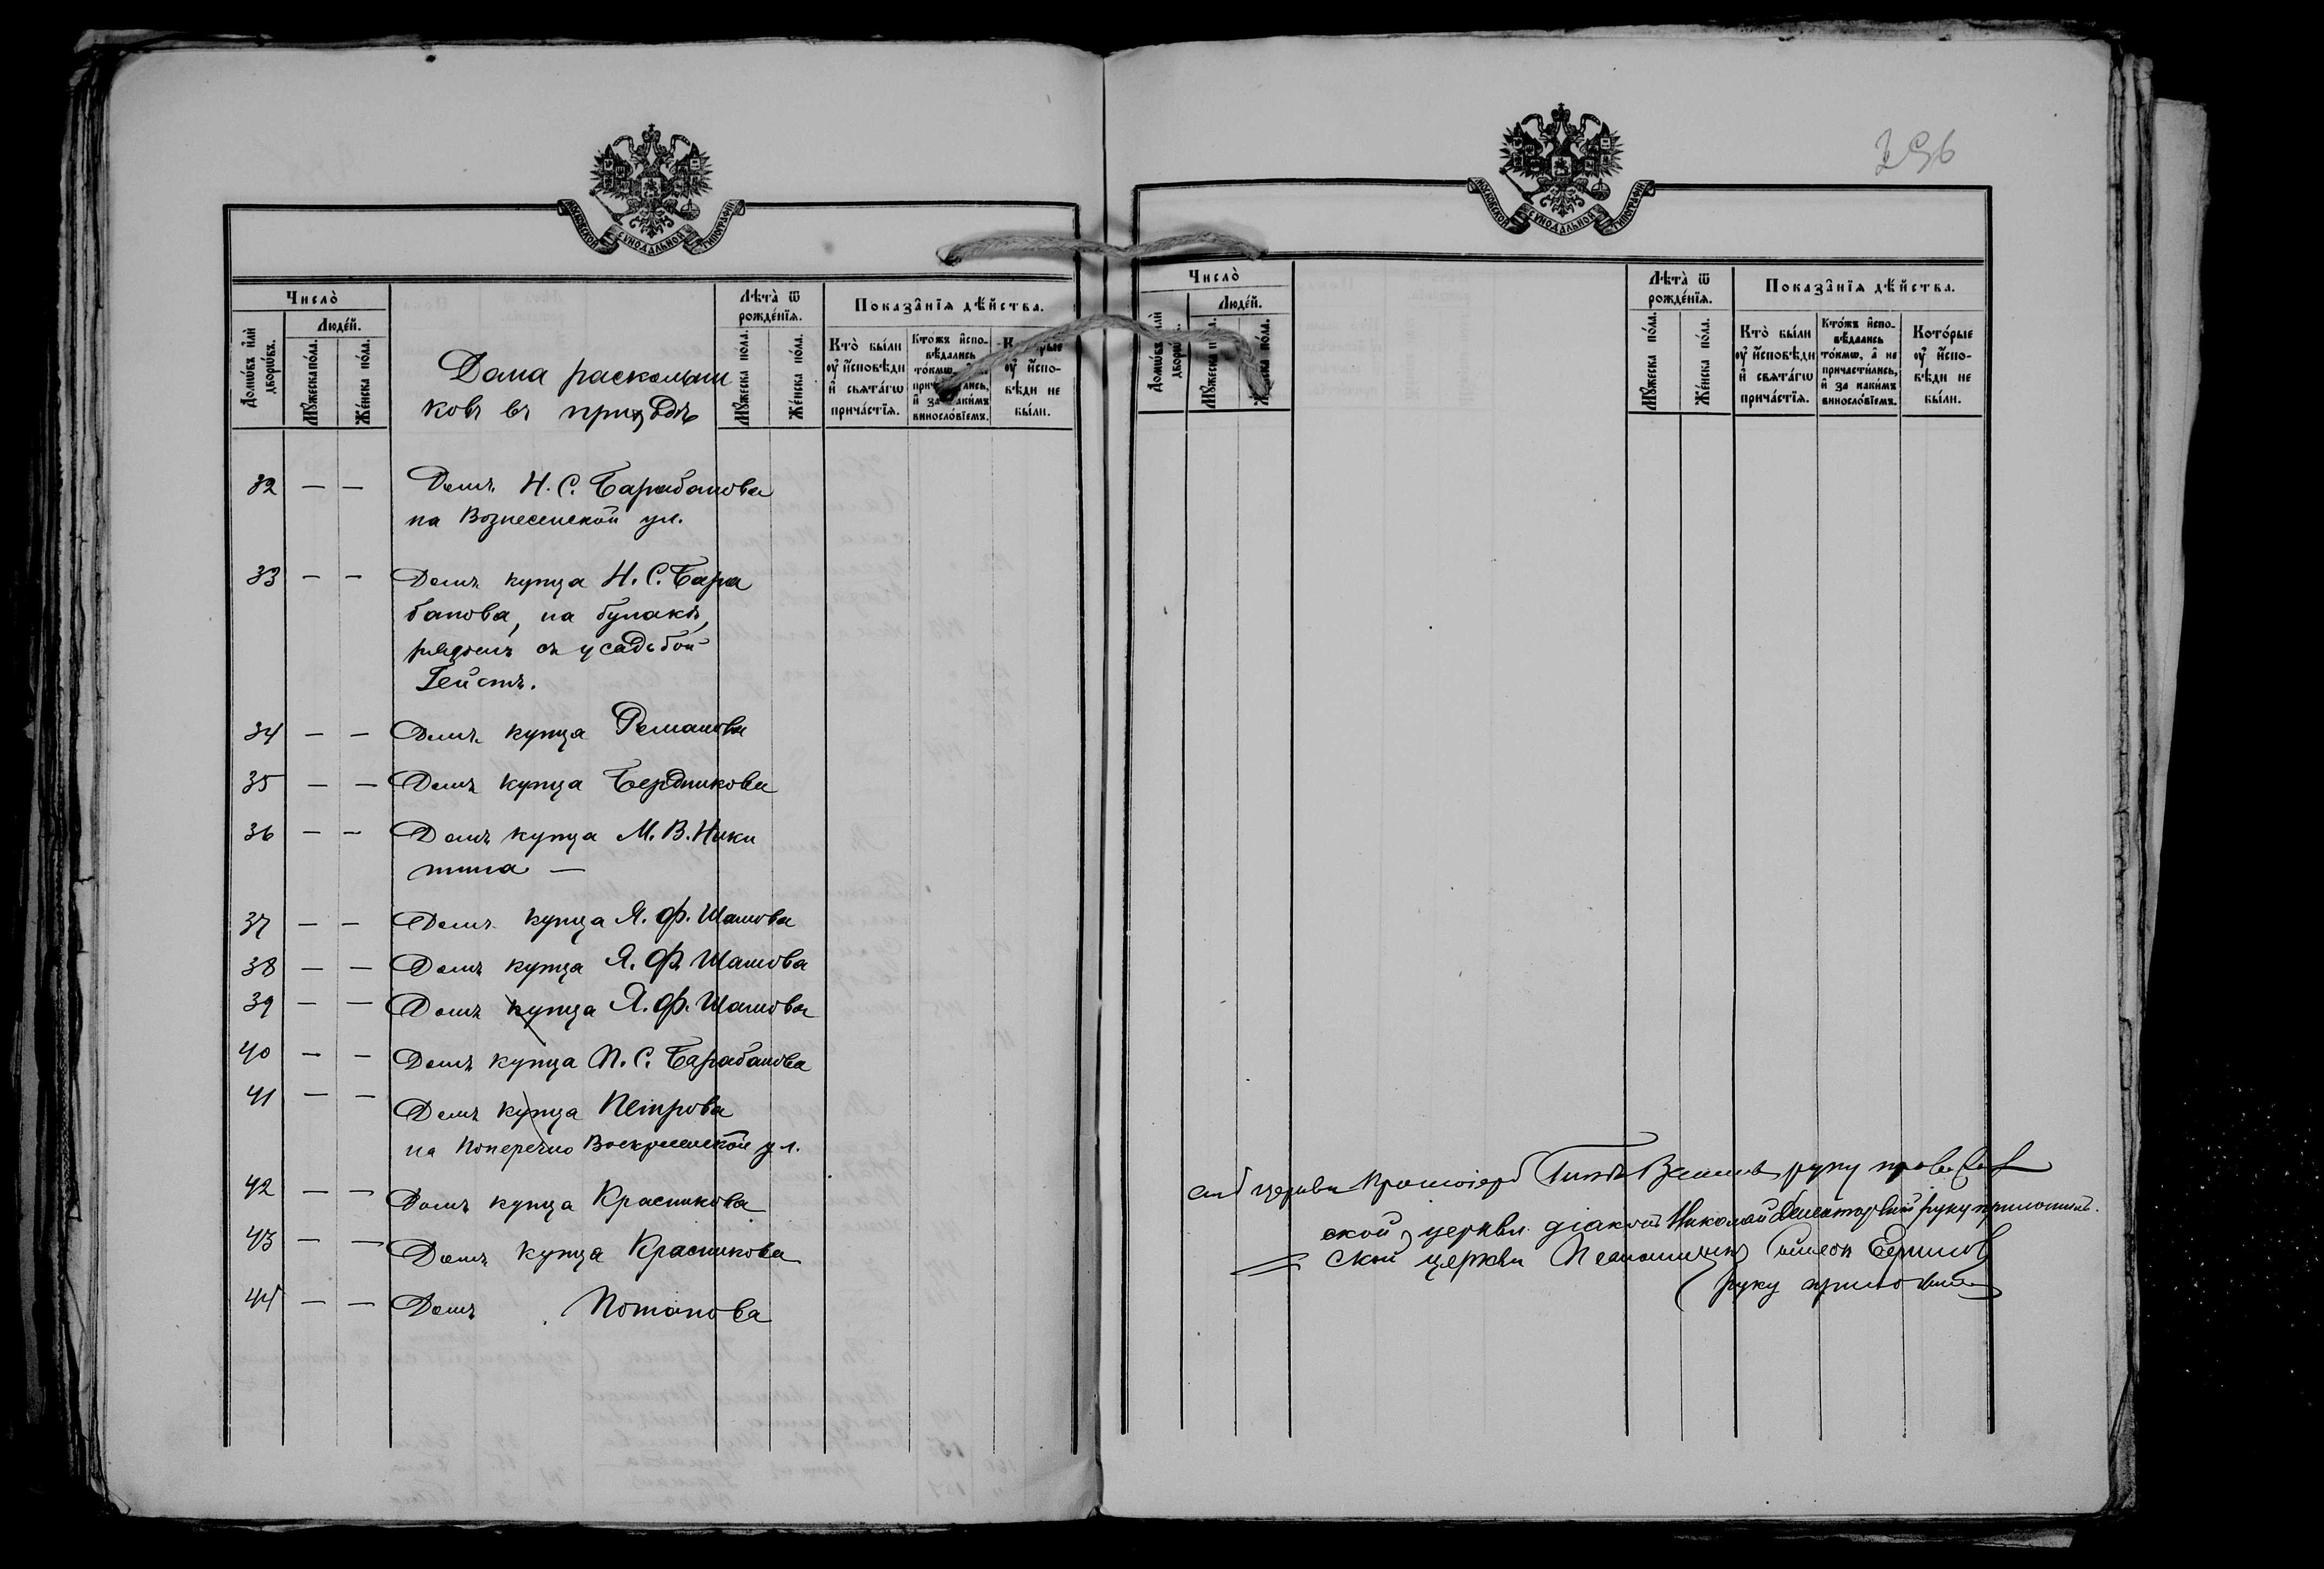 МОСКОВСКОЙ СѴНОДАЛЬНОЙ ТИПОГРАФІИ
Число̀
Домѡ́въ и҆лѝ дворѡ́въ.
Люде́й.
Мꙋ́жеска по́ла.
Же́нска по́ла.
Дома раскольни
ковъ въ приходѣ
Лѣта̀ ѿ рожде́нїѧ.
Мꙋ́жеска по́ла.
Же́нска по́ла.
Показа̂нїѧ дѣ́йства.
Кто̀ бы́ли ᲂу҆ и҆сповѣди и҆ свѧта́гѡ прича́стїѧ.
Кто́жъ и҆спо-
вѣдались
то́кмѡ,
и҆ за каки́мъ
винослове́їемъ.
ᲂу҆ и҆спо-
вѣди не
бы́ли.
32 — — Домъ Н. С. Барабанова
на Вознесенской ул.
33 — — Домъ купца Н. С. Бара
банова, на булакѣ,
рядомъ съ усадьбой
Гейстъ.
34 — — Домъ купца Романова
35 — — Домъ купца Бердникова
36 — — Домъ купца М. В. Ники
тина —
37 — — Домъ купца Я. Ф. Шамова
38 — — Домъ купца Я. Ф. Шамова
39 — — Домъ купца Я. Ф. Шамова
40 — — Домъ купца П. С. Барабанова
41 — — Домъ купца Петрова
на Поперечно Воскресенской ул.
42 — — Домъ купца Красникова
43 — — Домъ купца Красникова
44 — — Домъ Потапова
296
МОСКОВСКОЙ СѴНОДАЛЬНОЙ ТИПОГРАФІИ
Число̀
Люде́й.
Лѣта̀ ѿ рожде́нїѧ.
Мꙋ́жеска по́ла.
Же́нска по́ла.
Показа̂нїѧ дѣ́йства.
Кто̀ бы́ли ᲂу҆ и҆сповѣди и҆ свѧта́гѡ прича́стїѧ.
Кто́жъ и҆спо-
вѣдались
то́кмѡ, а҆ не
причасти́лись,
и҆ за каки́мъ
винослове́їемъ.
Кото́рые
ᲂу҆ и҆спо-
вѣди не
бы́ли.
церкви Протоіерей руку
ской церкви діаконъ Николай руку приложилъ.
ской церкви Псаломщикъ
руку приложилъ